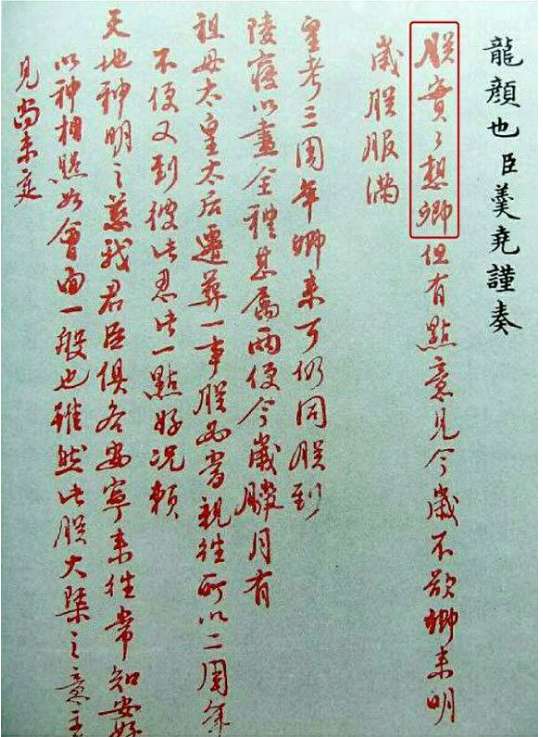 龍顏也臣羹堯謹奏
朕實〻想卿但有點意見今歲不欲卿来明
歲朕服滿
皇考三周年卿来可仍同朕到
陵寢以盡全禮甚屬兩便今歲臘月有
祖母太皇太后遷葬一事朕必當親往所以二周年
不便又到彼此忍此一點好况賴
天地神明之慈我君臣俱各安寧来往常知安好
以神相照如會面一般也雖然此朕大槩之意主
見尚未定